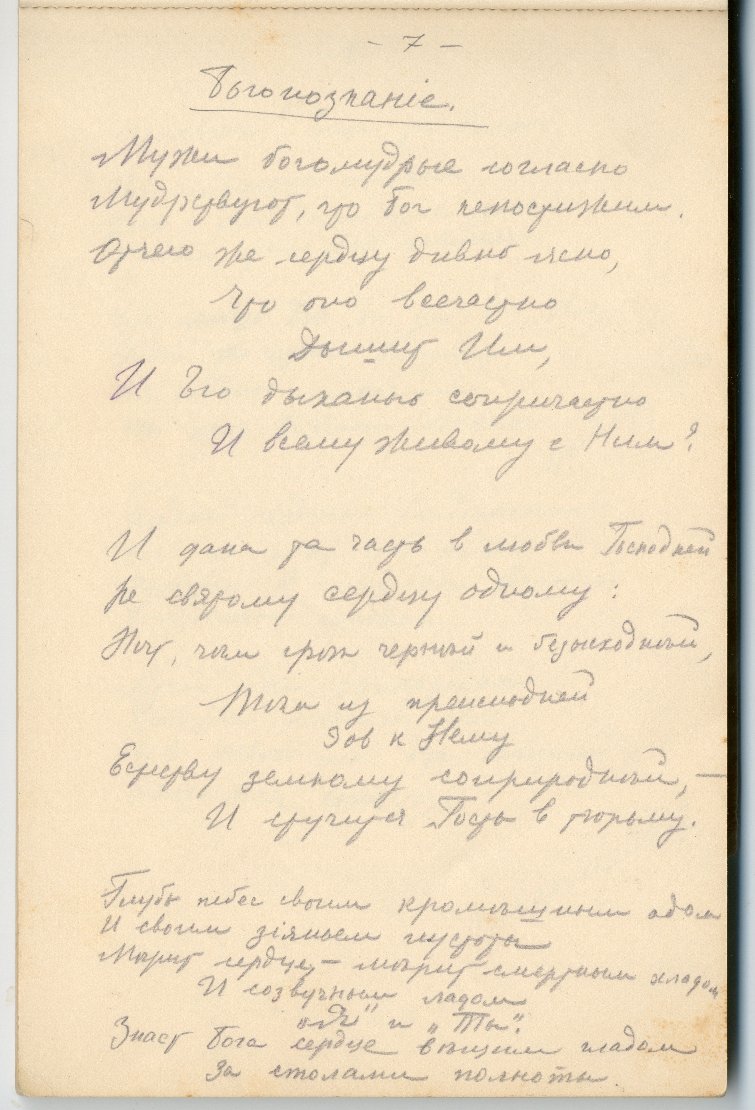 - 7 -
Богопознаніе.
Мужи богомудрые согласно
Мудрствуют, что Бог непостижим.
Отчего же сердцу дивно ясно,
Что оно всечастно
Дышит Им,
И Его дыханью сопричастно
И всему живому с Ним?
И дана та часть в любви Господней
Не святому сердцу одному:
Нет, чем грех черный и безысходный,
Тем из преисподней
Зов к Нему
Естеству земному соприродный, —
И стучится Гость в тюрьму.
Глубь небес своим кромешным адом
И своим зіяньем пустоты
Мерит сердце, — мерит смертным хладом
И созвучным ладом
„Я" и „Ты".
Знает Бога сердце вящим гладом
За столами полноты.